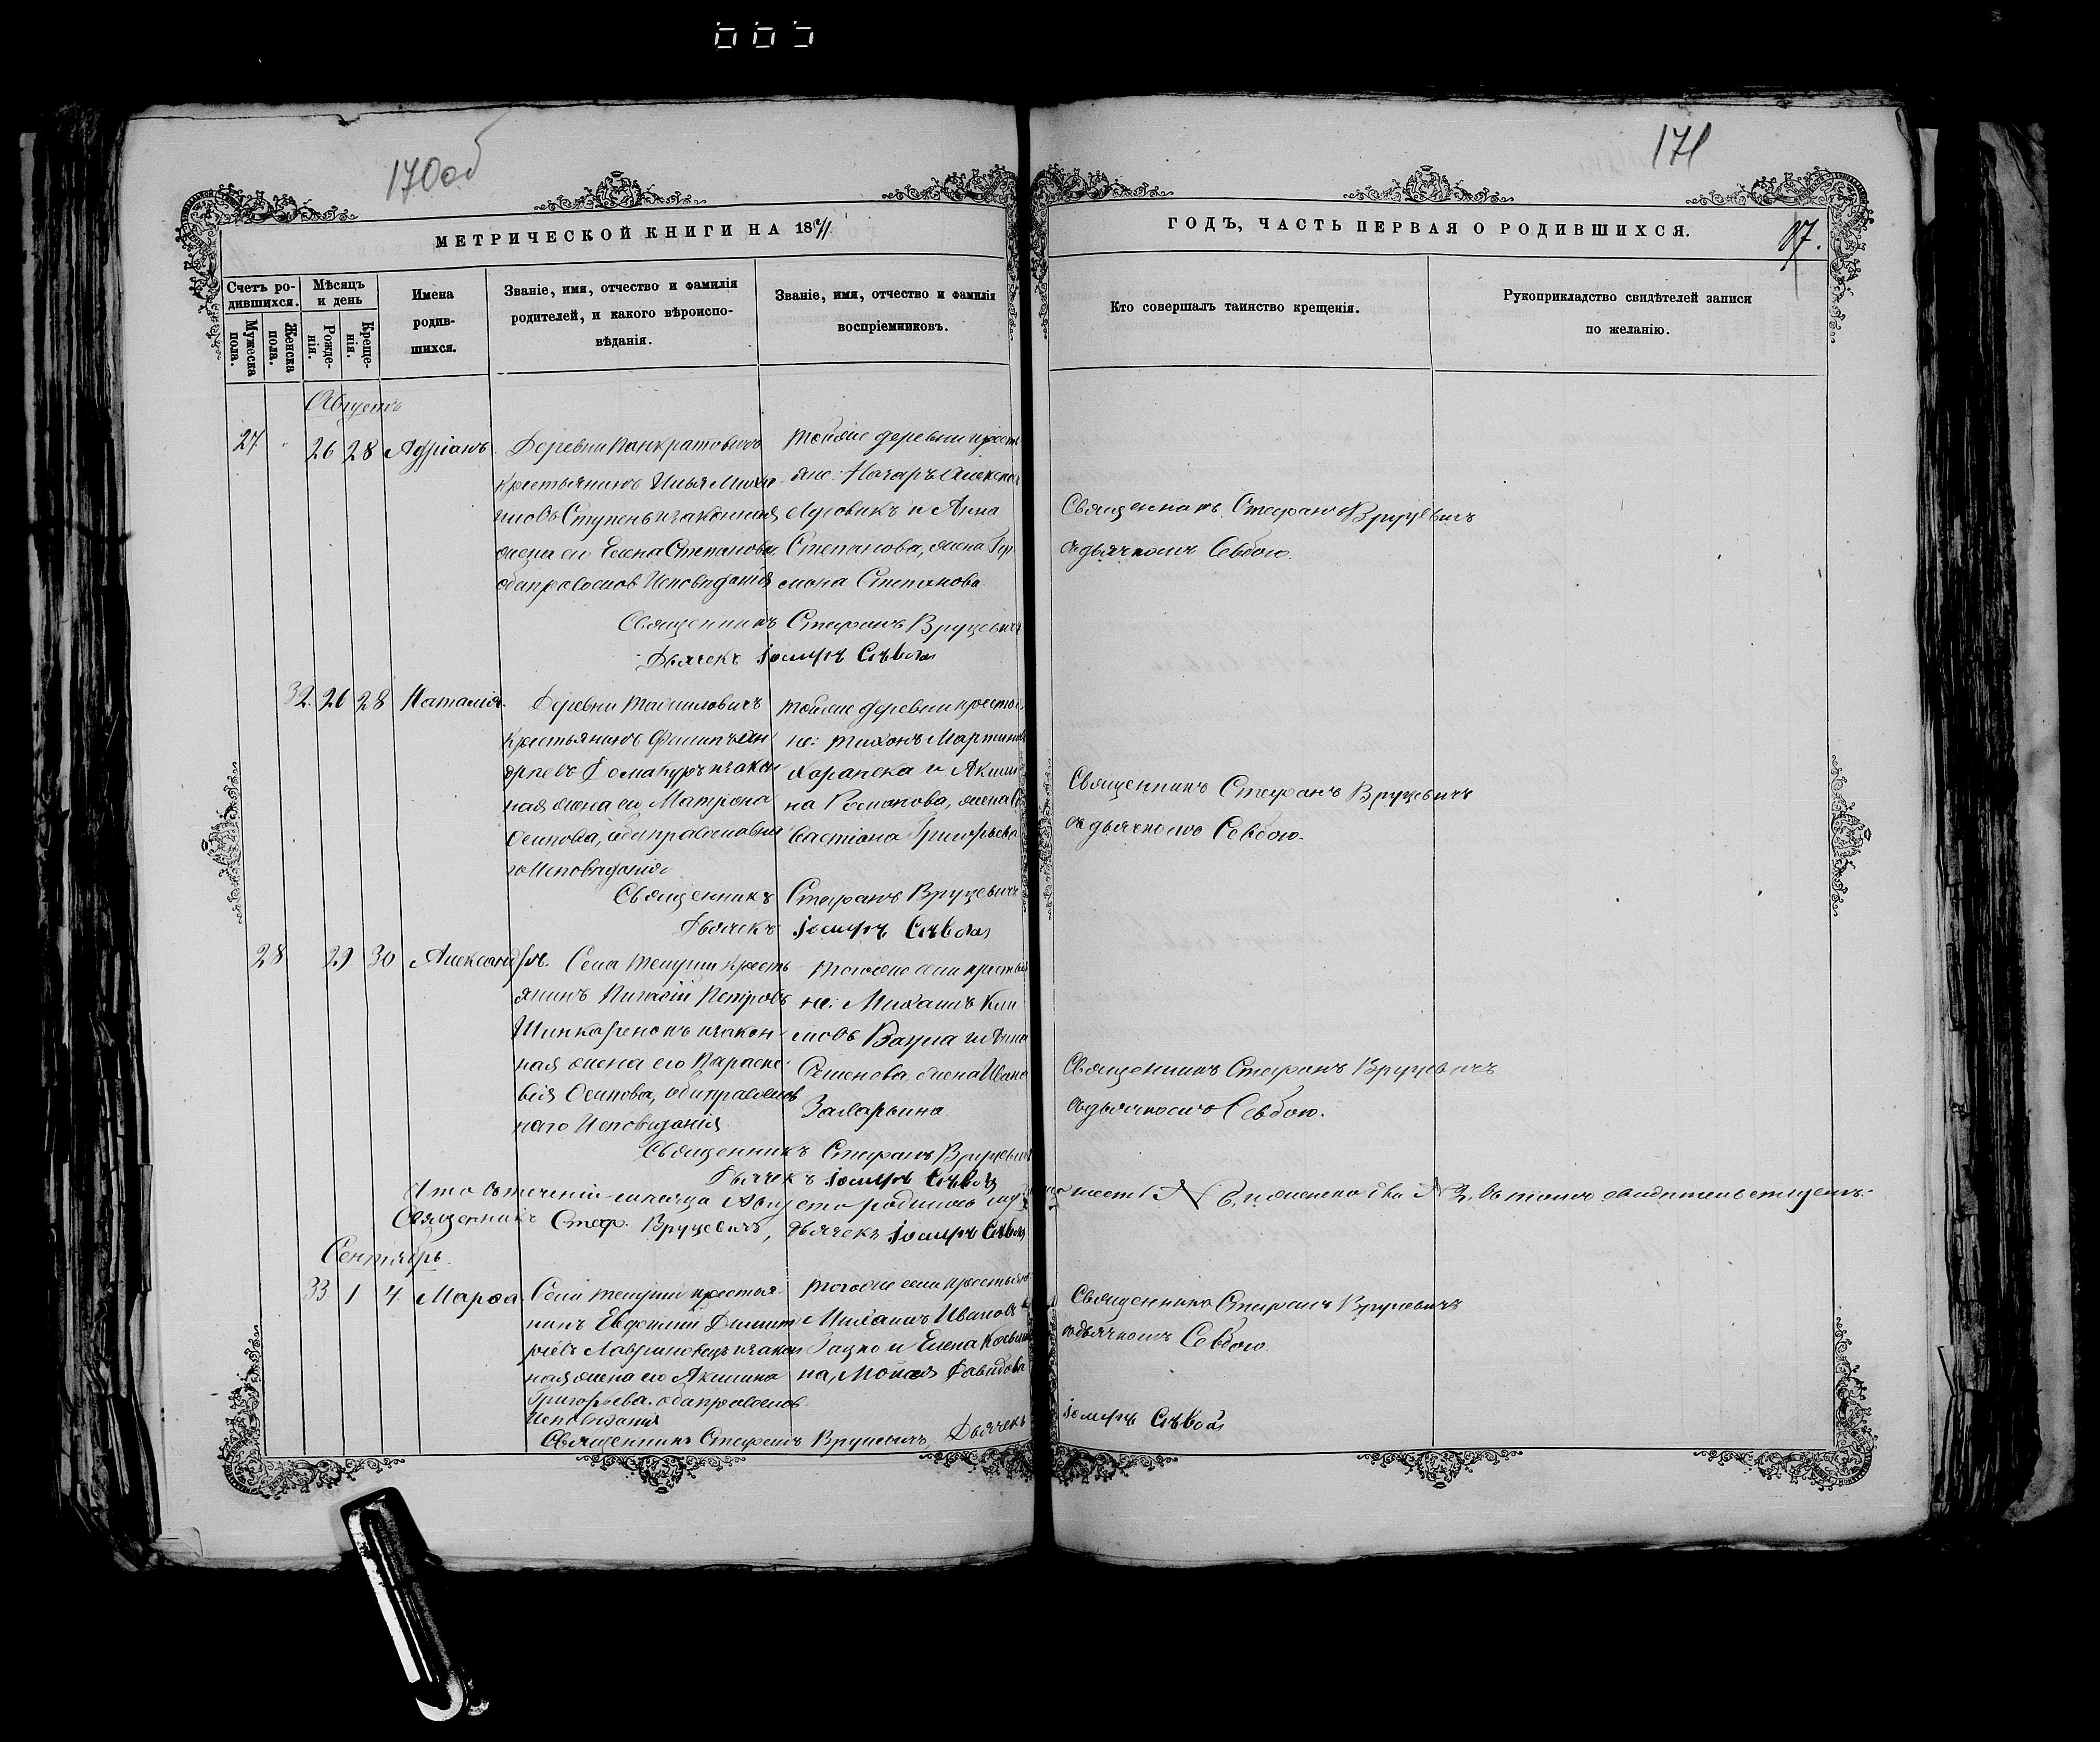 170об
171
МЕТРИЧЕСКОЙ КНИГИ НА 1871
ГОДЪ, ЧАСТЬ ПЕРВАЯ О РОДИВШИХСЯ.
Счетъ ро-
дившихся.
Мужеска пола.
Женска пола.
Мѣсяцъ
и день
Рожде-
нія.
Креще-
нія.
Имена
родив-
шихся.
Званіе, имя, отчество и фамилія
родителей, и какого вѣроиспо-
вѣданія.
Званіе, имя, отчество и фамилія
воспріемниковъ.
Кто совершалъ таинство крещенія.
Рукоприкладство свидѣтелей записи
по желанію.
Августъ
27 26 28 Адріанъ.
Деревни Панкратовичъ
крестьянинъ Илья Миха-
иловъ Ступень и законная
жена его Елена Степанова,
оба православ. Исповѣданія
тойже деревни крестья
Лусовикъ и Анна
Степанова, жена
Степанова
Священникъ Стефанъ Вруцевичъ
съ дьячкомъ Севбою.
Священникъ Стефанъ Вруцевичъ
Дьячекъ Іосифъ Сѣвба
32. 26 28 Наталія.
Деревни
крестьянинъ Филипъ Ан-
дреевъ и закон-
ная жена его Матрона
Осипова, оба православна-
го Исповѣданія
тойже деревни крестья
не: Тихонъ Мартиновъ
и Акили-
на Романова, жена Се-
вастіана Григорьева
Священникъ Стефанъ Вруцевичъ
съ дьячкомъ Севбою.
Священникъ Стефанъ Вруцевичъ
Дьячекъ Іосифъ Сѣвба
28 29 30 Александръ.
Села кресть-
янинъ Петровъ
Шинкаренокъ и закон-
ная жена его Параске-
вія Осипова, оба православ
наго Исповѣданія
тогоже села крестья
не: Михаилъ Кли-
мовъ и Анна
Семенова, жена Ивана
Захарьина
Священникъ Стефанъ Вруцевичъ
съ дьячкомъ Севбою.
Священникъ Стефанъ Вруцевичъ
Дьячекъ Іосифъ Сѣвба
Что въ теченіи мѣсяца Августа родилось № 6, и женска № 3. въ томъ свидѣтельствуемъ:
Священникъ Стеф. Вруцевичъ, дьячекъ Іосифъ Сѣвба
Сентябрь.
33 1 4 Марѳа
Села крестья-
нинъ Евфимій Димит-
ріевъ и закон-
ная жена его Акилина
Григорьева. оба православ.
Исповѣданія
тогоже села крестьяне
Михаилъ Ивановъ
и Елена
на, Давидова
Священникъ Стефанъ Вруцевичъ
съ дьячкомъ Севбою.
Священникъ Стефанъ Вруцевичъ Дьячекъ Іосифъ Сѣвба